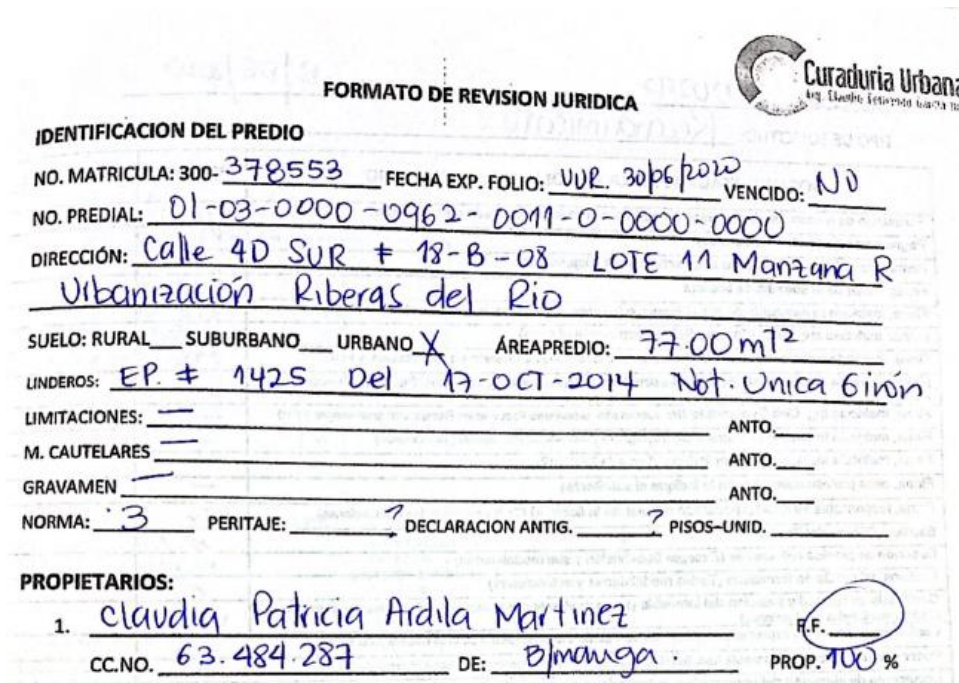 Curaduria Urbana
FORMATO DE REVISION JURIDICA
IDENTIFICACION DEL PREDIO
NO. MATRICULA: 300- 378553 FECHA EXP. FOLIO: VUR. 30/06/2020 VENCIDO: NO
NO. PREDIAL: 01-03-0000-0962-0011-0-0000-0000
DIRECCIÓN: Calle 4D SUR # 18-B-08 LOTE 11 Manzana R
Urbanización Riberas del Rio
SUELO: RURAL___ SUBURBANO___ URBANO X ÁREAPREDIO: 77.00 mt2
LINDEROS: EP. # 1425 Del 17-OCT-2014 Not. Unica Girón
LIMITACIONES: — ANTO.___
M. CAUTELARES — ANTO.___
GRAVAMEN — ANTO.___
NORMA: 3 PERITAJE: ? DECLARACION ANTIG. ? PISOS-UNID.
PROPIETARIOS:
1. Claudia Patricia Ardila Martinez F.F.
CC.NO. 63.484.287 DE: B/manga. PROP. 100 %